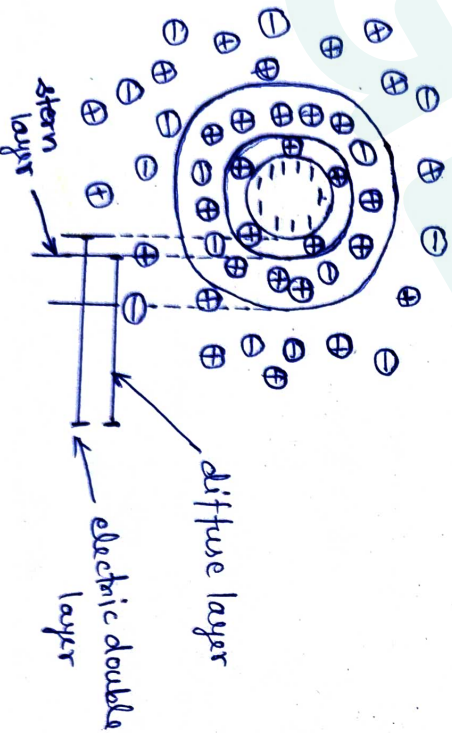 stern
layer
diffuse layer
electric double
layer